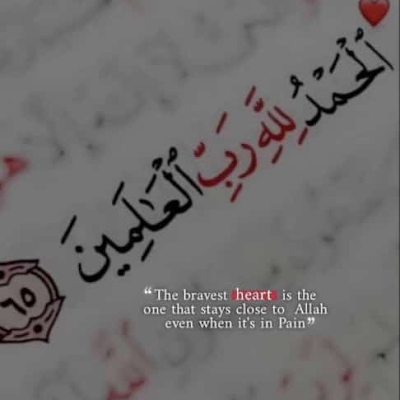 ٱلْحَمْدُ لِلَّهِ رَبِّ ٱلْعَـٰلَمِينَ
٦٥
❝The bravest heart is the
one that stays close to Allah
even when it's in Pain❞